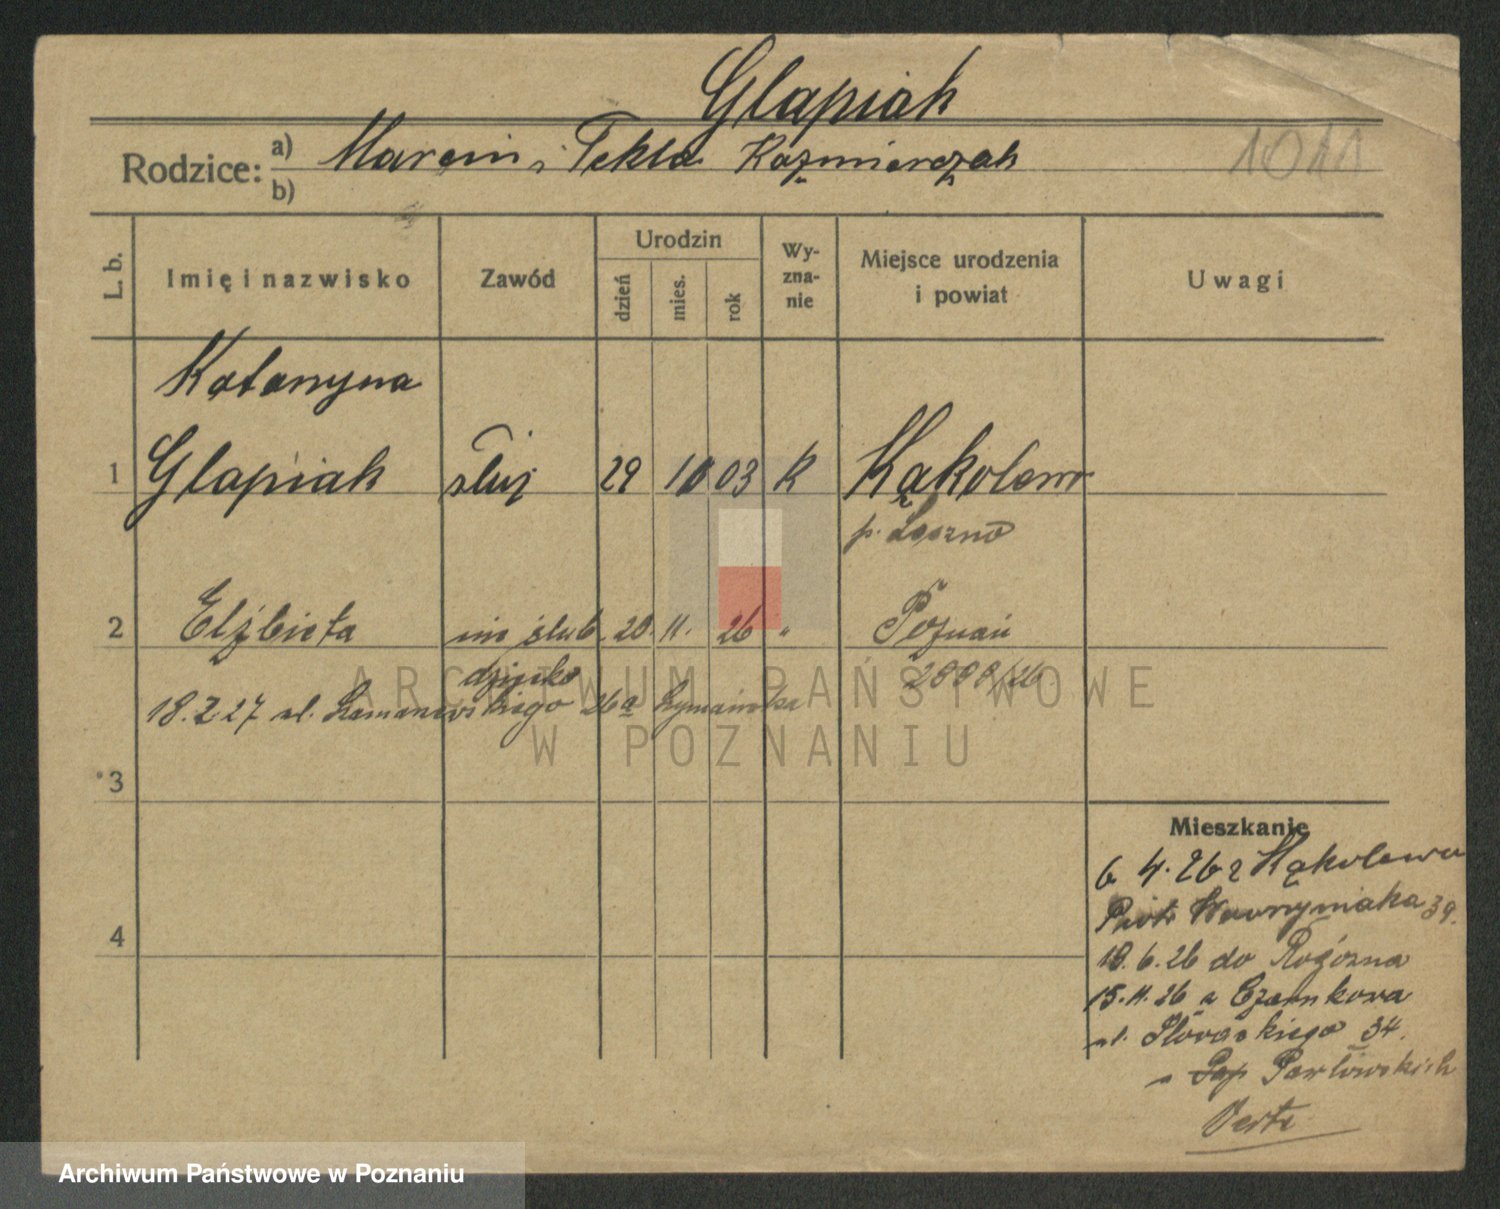 Glapiak
1011
Rodzice: a) Marcin i Tekla Kaźmierczak
b)
L. b. Imię i nazwisko Zawód Urodzin dzień mies. rok Wy-zna-nie Miejsce urodzenia i powiat Uwagi
Katarzyna
1 Glapiak służ 29 10 03 k Kąkolewo
p. Leszno
2 Elżbieta nie ślub. 20. 11. 26 " Poznań
dziecko 2000/26
18.2.27 ul. 26a
3
4
Mieszkanie
6 4. 26 z Kąkolewa
Piotr Wawrzyniaka 39.
18. 6. 26 do Rogoźna
15. 11. 26 z Czarnkowa
ul. Słowackiego 34.
u Pawłowskich
Verte
ARCHIWUM PAŃSTWOWE
W POZNANIU
Archiwum Państwowe w Poznaniu